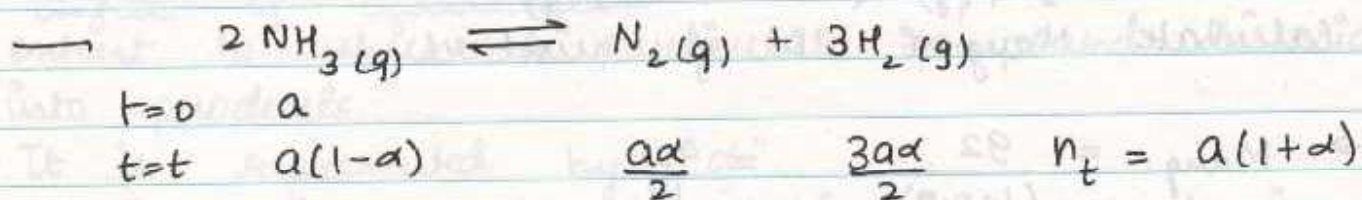 — 2 NH₃(g) ⇌ N₂(g) + 3H₂(g)
t=0 a
t=t a(1-α) aα/2 3aα/2 nₜ = a(1+α)